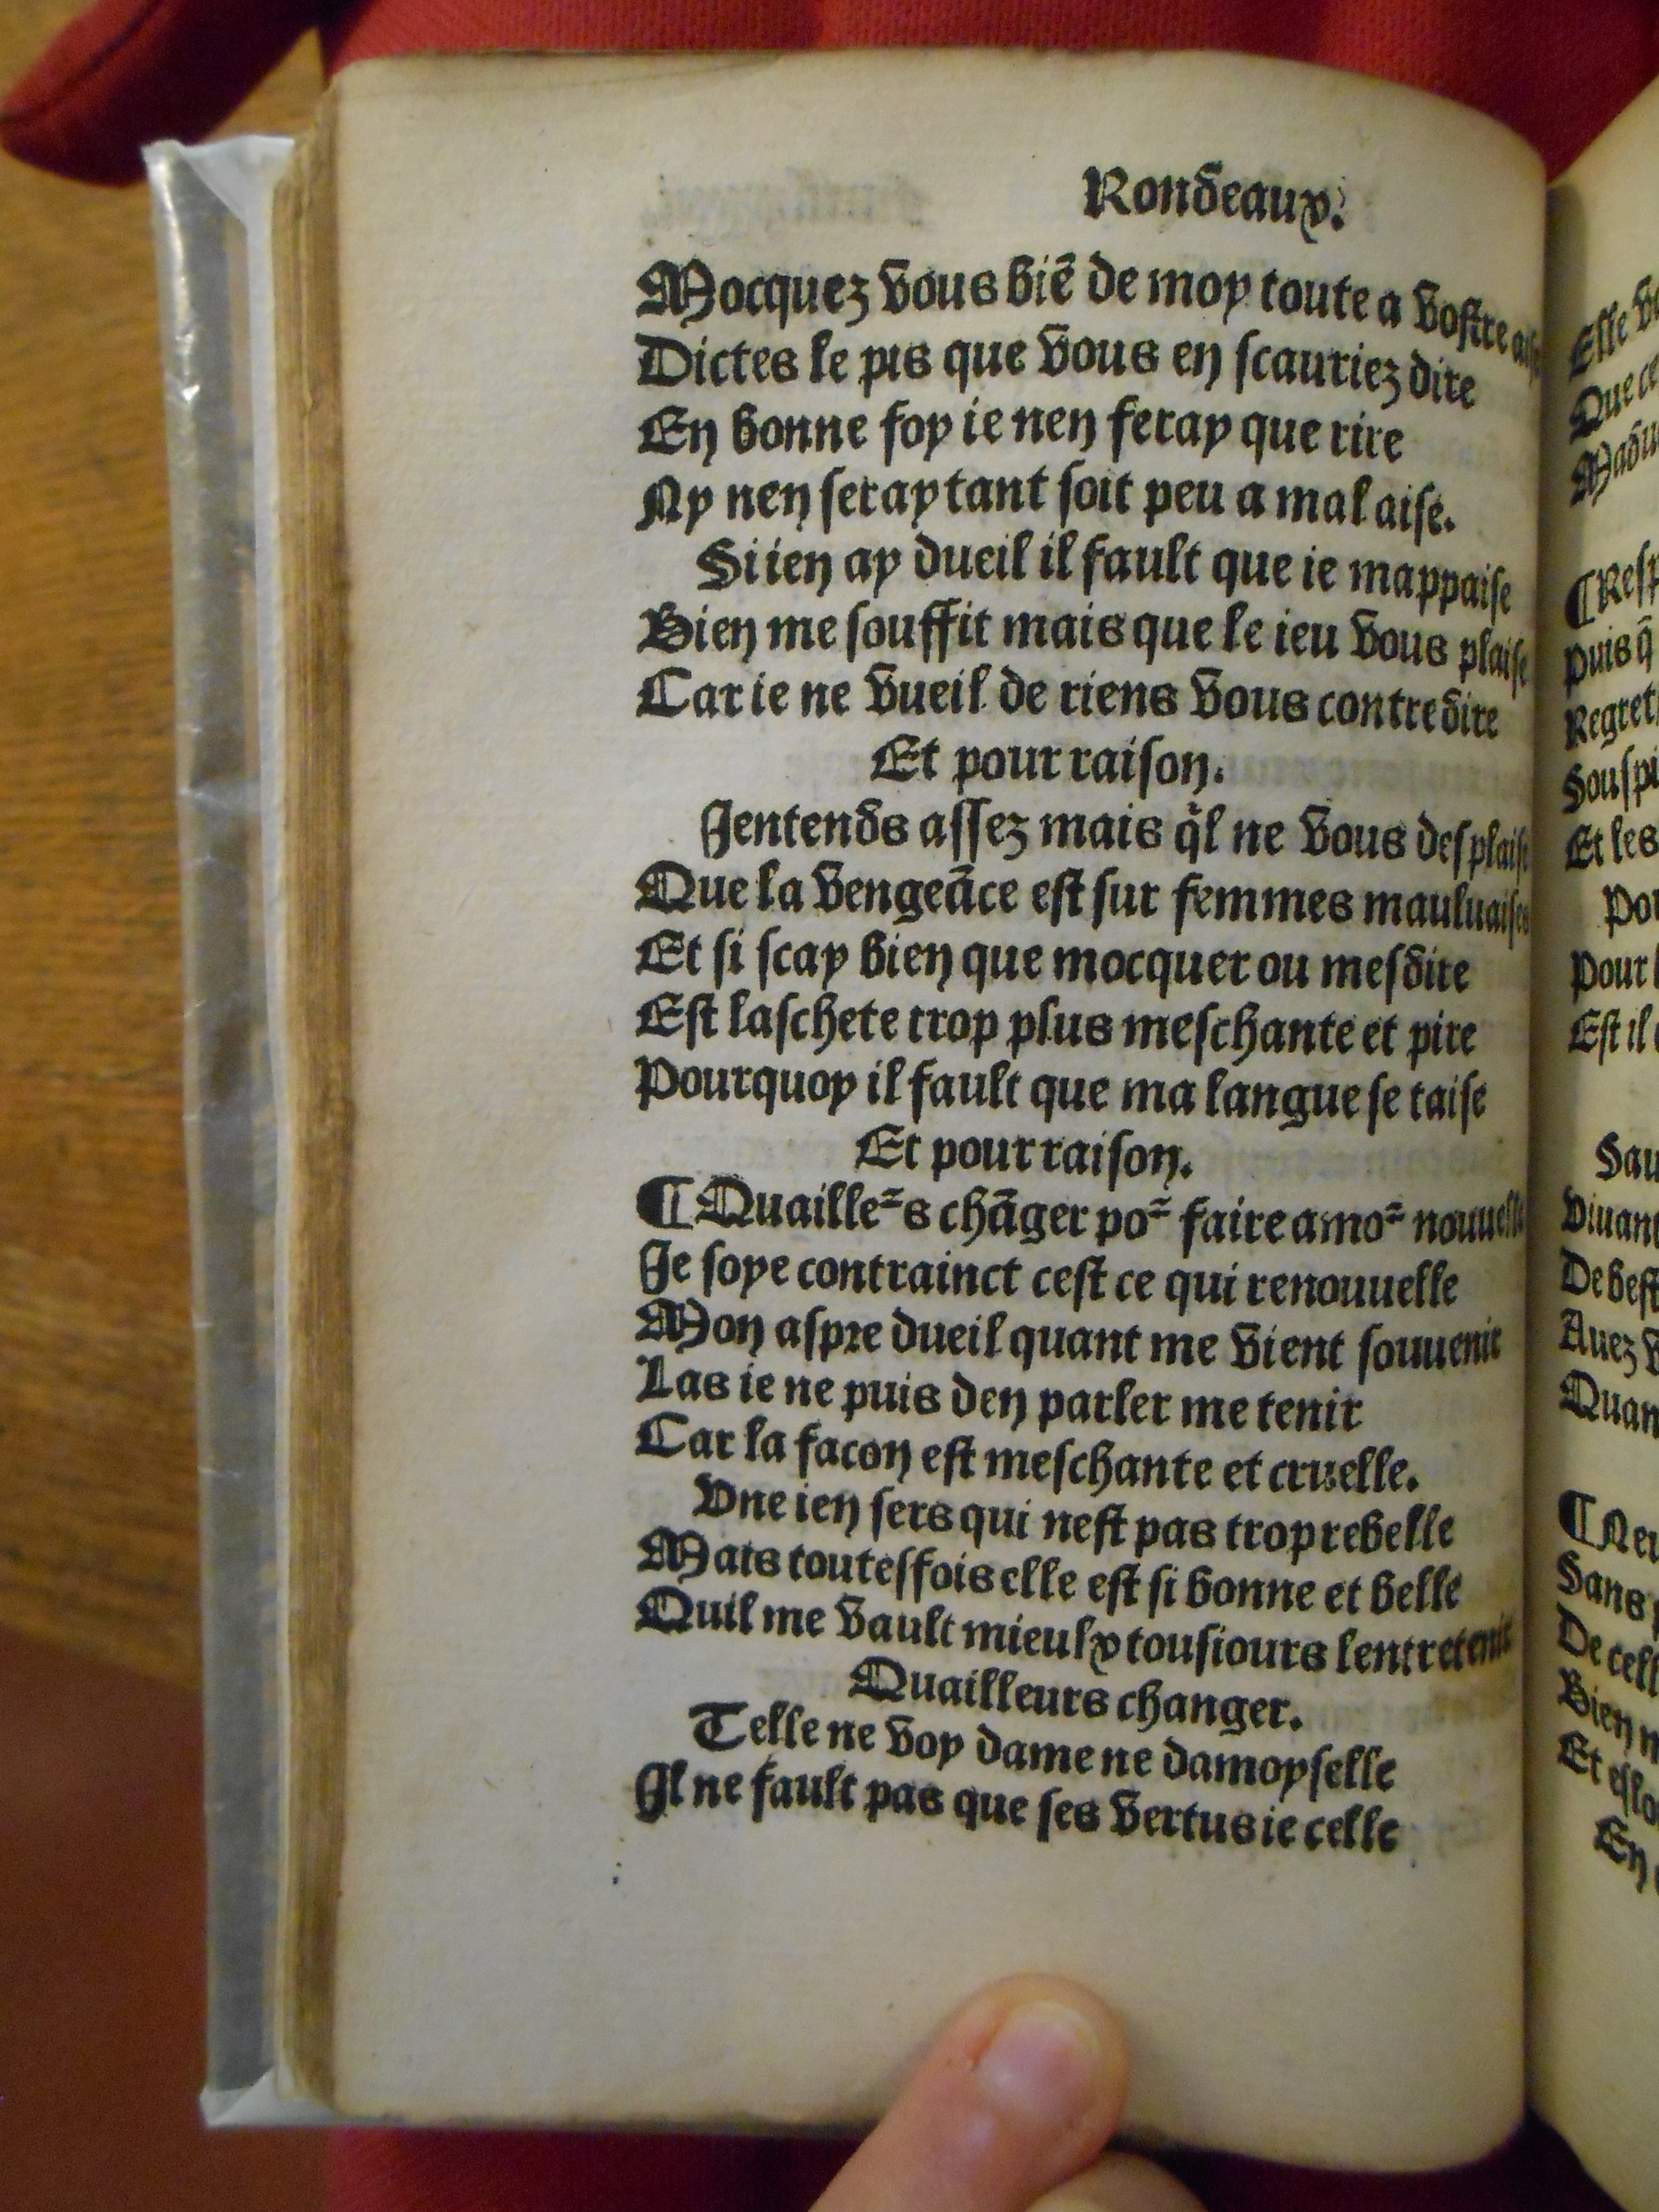 Rondeaux.
Mocquez vous biē de moy toute a vostre
Dictes le pis que vous en scauriez dire
En bonne foy ie nen feray que rire
Ny nen seray tant soit peu a mal aise.
Si ien ay dueil il fault que ie mappaise
Bien me souffit mais que le ieu vous plaise
Car ie ne vueil de riens vous contredire
Et pour raison.
Jentends assez mais q̇l ne vous desplaise
Que la vengeāce est sur femmes mauluaises
Et si scay bien que mocquer ou mesdire
Est laschete trop plus meschante et pire
Pourquoy il fault que ma langue se taise
Et pour raison.
¶ Quaille᷑s chāger po᷑ faire amo᷑ nouuelle
Je soye contrainct cest ce qui renouuelle
Mon aspre dueil quant me vient souuenir
Las ie ne puis den parler me tenir
Car la facon est meschante et cruelle.
Vne ien sers qui nest pas trop rebelle
Mais toutesfois elle est si bonne et belle
Quil me vault mieulx tousiours lentretenir
Quailleurs changer.
Telle ne voy dame ne damoyselle
Il ne fault pas que ses vertus ie celle
Elle
Que ce
¶ Resp
Puis q̄
Regret
Souspi
Et les
Pour
Est il
Viuant
De best
Auez
Quan
Sans
De cell
Bien
En